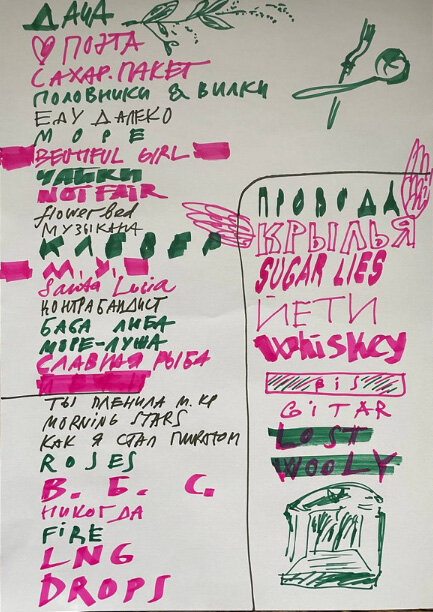 ДАЧА
ПОЭТА
САХАР. ПАКЕТ
ПОЛОВНИКИ & ВИЛКИ
ЕДУ ДАЛЕКО
МОРЕ
BEUTIFUL GIRL
ЧАЙКИ
NOT FAIR
flower bed
МУЗЫКАНА
КЛЕВЕР
М. У.
Santa Lucia
КОНТРАБАНДИСТ
БАБА ЛЮБА
МОРЕ-ЛУША
СЛАВНАЯ РЫБА
ТЫ ПЛЕНИЛА М. КР
MORNING STARS
КАК Я СТАЛ ПИРАТОМ
ROSES
В. Б. С.
НИКОГДА
FIRE
LNG
DROPS
ПРОВОДА
КРЫЛЬЯ
SUGAR LIES
ЙЕТИ
Whiskey
BIS
GITAR
LOST
WOOLY